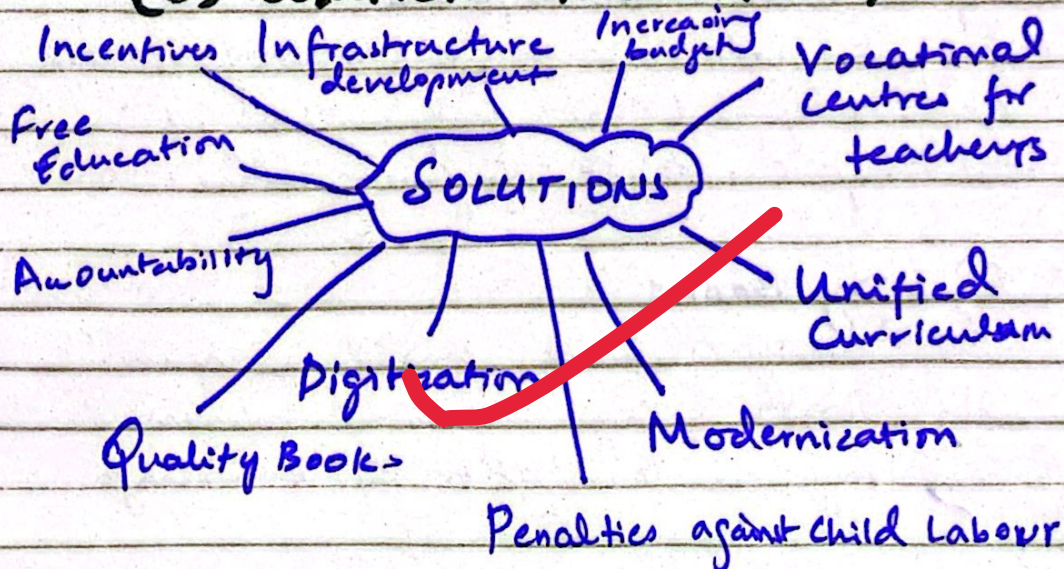 Incentives
Infrastructure
development
Increasing
budget
Vocational
centres for
teachers
Free
Education
SOLUTIONS
Accountability
Unified
Curriculum
Digitization
Quality Books
Modernization
Penalties against Child Labour